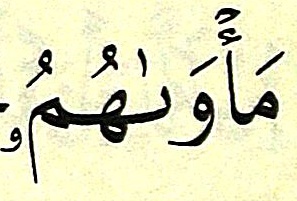 مَأْوَىٰهُمُ